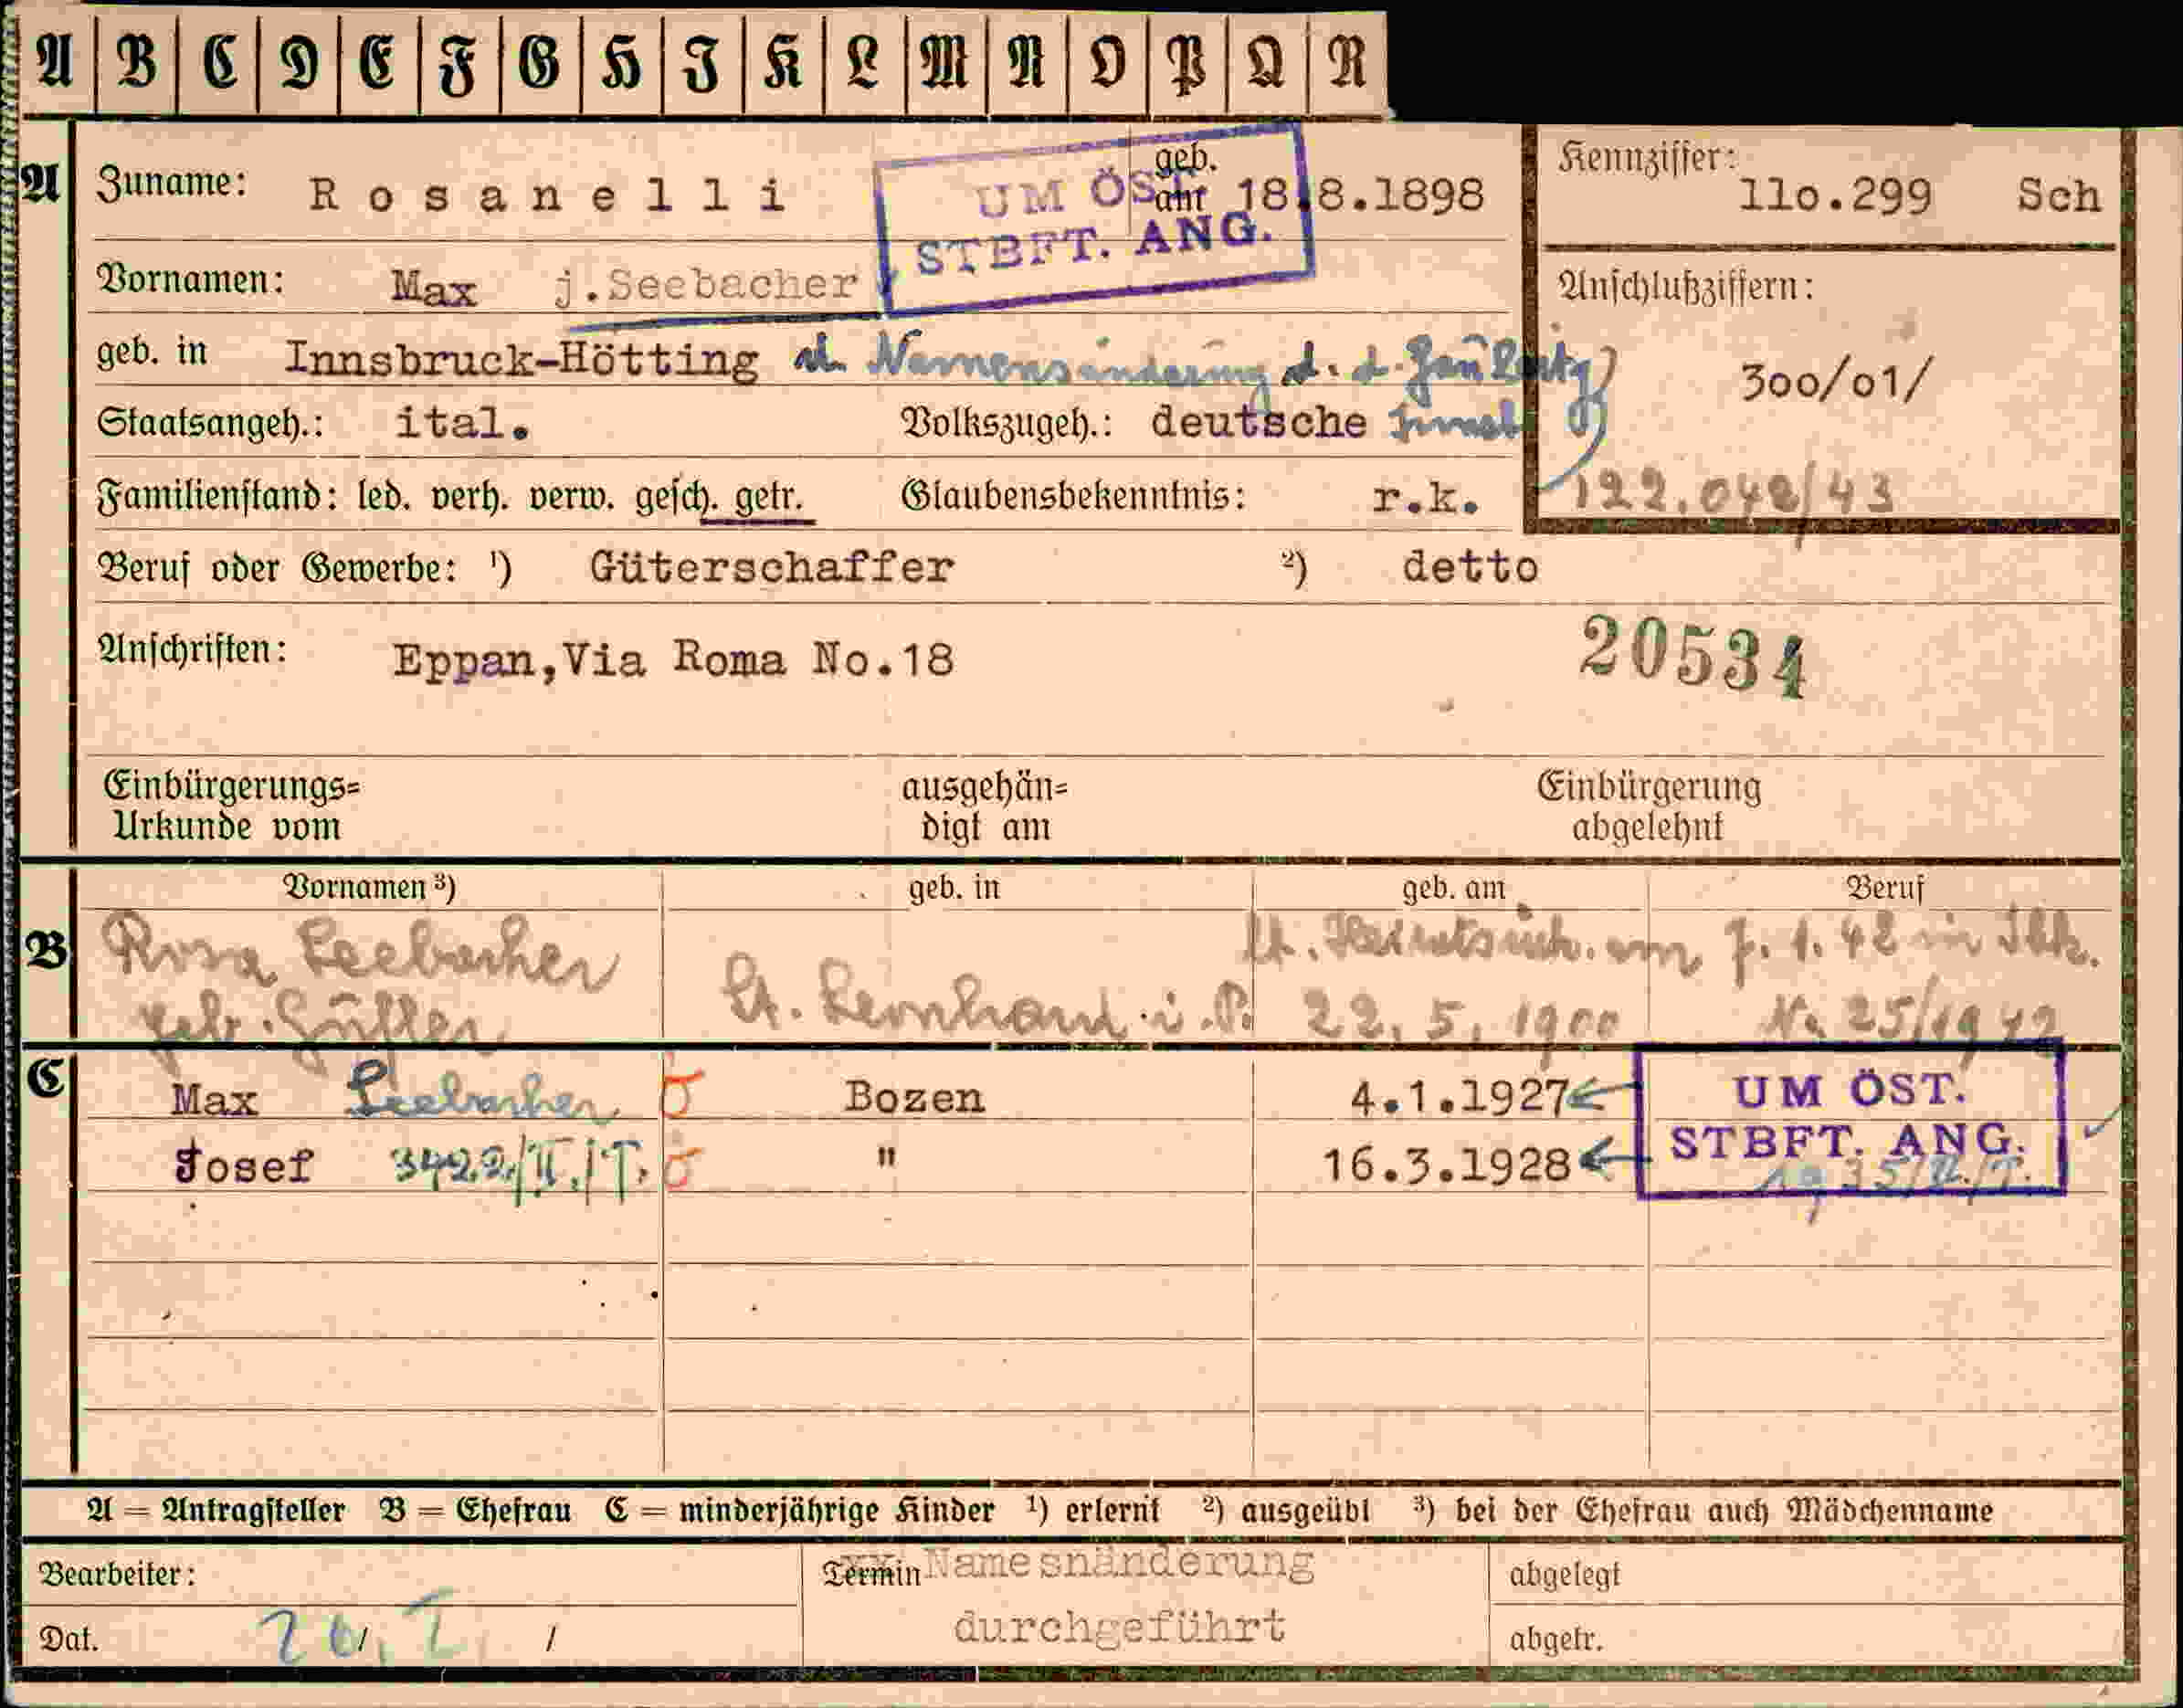 A B C D E F G H I K L M N O P Q R
A
Zuname: Rosanelli
geb. am 18.8.1898
UM ÖST.
STBFT. ANG.
Kennziffer: 11o.299 Sch
Vornamen: Max j.Seebacher
Anschlußziffern:
300/01/
122.042/43
geb. in Innsbruck-Hötting Namensänderung d. d.
Staatsangeh.: ital. Volkszugeh.: deutsche
Familienstand: led. verh. verw. gesch. getr. Glaubensbekenntnis: r.k.
Beruf oder Gewerbe: 1) Güterschaffer 2) detto
Anschriften: Eppan,Via Roma No.18
20534
Einbürgerungs=
Urkunde vom
ausgehän=
digt am
Einbürgerung
abgelehnt
B
Vornamen 3) geb. in geb. am Beruf
Rosa Seebacher
geb.
St. Leonhard i. P. 22. 5. 1900
lt. am 7. 1. 42 in Ibk.
No 25/1942
C
Max Seebacher Bozen 4.1.1927
Josef 3422/II./T. " 16.3.1928
UM ÖST.
STBFT. ANG.
A = Antragsteller B = Ehefrau C = minderjährige Kinder 1) erlernt 2) ausgeübt 3) bei der Ehefrau auch Mädchenname
Bearbeiter:
Termin Namesnänderung
durchgeführt
abgelegt
Dat. /
abgetr.